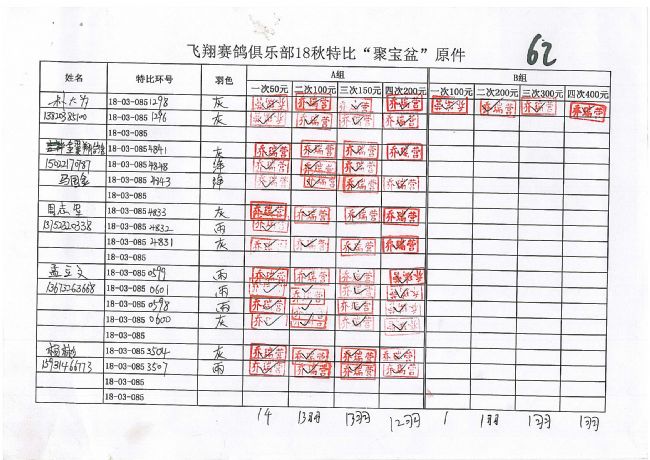 飞翔赛鸽俱乐部18秋特比“聚宝盆”原件 62
姓名 特比环号 羽色 A组 B组
一次50元 二次100元 三次150元 四次200元 一次100元 二次200元 三次300元 四次400元
18-03-0851298 灰
13820385100 18-03-0851296 灰 乔瑞营 乔瑞营 乔瑞营 乔瑞营
18-03-085
18-03-0854841 灰 乔瑞营 乔瑞营 乔瑞营 乔瑞营
15022170987 18-03-0854848 绛 乔瑞营 乔瑞营 乔瑞营
马国金 18-03-0854843 绛 乔瑞营 乔瑞营 乔瑞营 乔瑞营
18-03-085
周志坚 18-03-0854833 灰 乔瑞营 乔瑞营 乔瑞营 乔瑞营
13752320338 18-03-0854832 雨 乔瑞营
18-03-08524831 灰 乔瑞营 乔瑞营 乔瑞营 乔瑞营
18-03-085
孟立文 18-03-0850599 雨 乔瑞营 乔瑞营 乔瑞营
13673263668 18-03-0850601 雨 乔瑞营 乔瑞营 乔瑞营
18-03-0850598 雨 乔瑞营 乔瑞营 乔瑞营
18-03-0850600 灰 乔瑞营 乔瑞营 乔瑞营 乔瑞营
18-03-085
18-03-0853504 灰 乔瑞营 乔瑞营 乔瑞营 乔瑞营
15931466773 18-03-0853507 雨 乔瑞营 乔瑞营 乔瑞营 乔瑞营
18-03-085
18-03-085
14 13羽 13羽 12羽 1 1羽 1羽 1羽